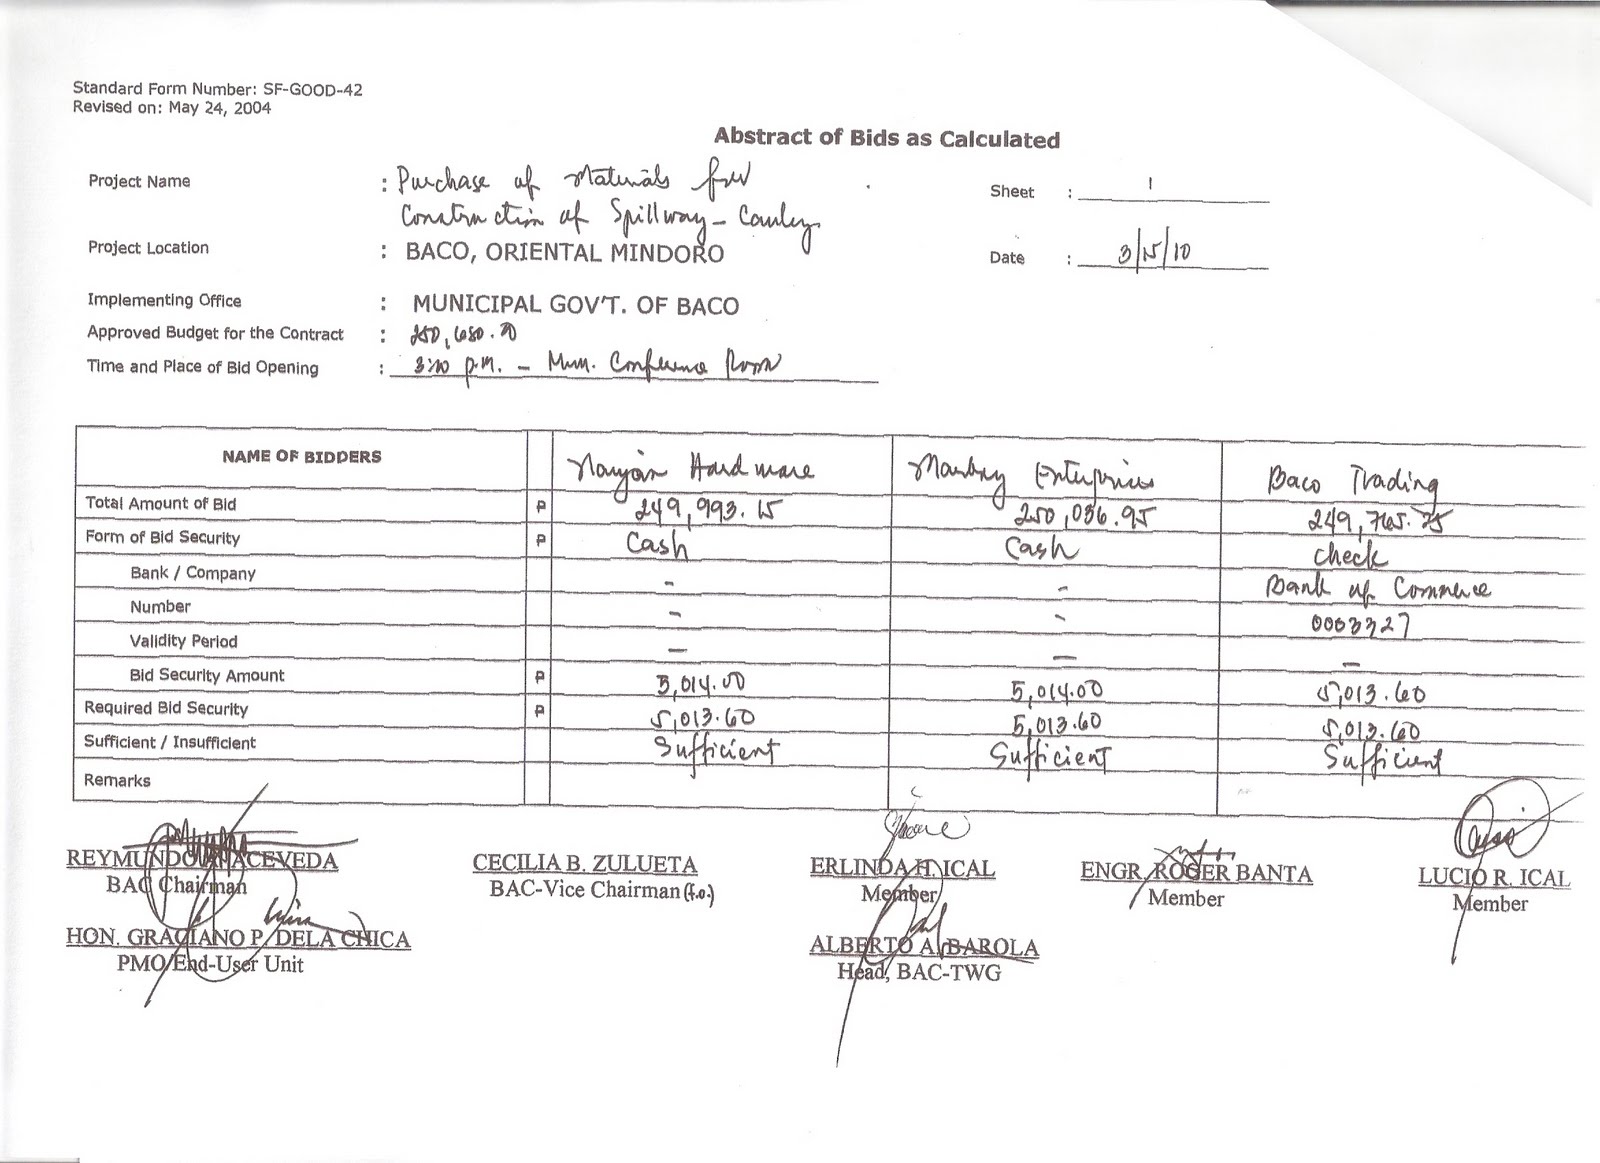 Standard Form Number: SF-GOOD-42
Revised on: May 24, 2004
Abstract of Bids as Calculated
Project Name : Purchase of Materials for
Construction of Spillway -
Sheet : 1
Project Location : BACO, ORIENTAL MINDORO
Date : 3/15/10
Implementing Office : MUNICIPAL GOV'T. OF BACO
Approved Budget for the Contract : 250,680.
Time and Place of Bid Opening : P.M. - Mun. Conference Room
NAME OF BIDDERS Hardware Enterprises Baco Trading
Total Amount of Bid P 249,993.15 250,036.95 249,765.75
Form of Bid Security P Cash Cash check
Bank / Company - - Bank of Commerce
Number - - 0003327
Validity Period - - -
Bid Security Amount P 5,014.00 5,014.00 5,013.60
Required Bid Security P 5,013.60 5,013.60 5,013.60
Sufficient / Insufficient Sufficient Sufficient Sufficient
Remarks
REYMUNDO ACEVEDA CECILIA B. ZULUETA ERLINDA H. ICAL ENGR. ROGER BANTA LUCIO R. ICAL
BAC Chairman BAC-Vice Chairman (f.o.) Member Member Member
HON. GRACIANO P. DELA CHICA ALBERTO A. BAROLA
PMO/End-User Unit Head, BAC-TWG